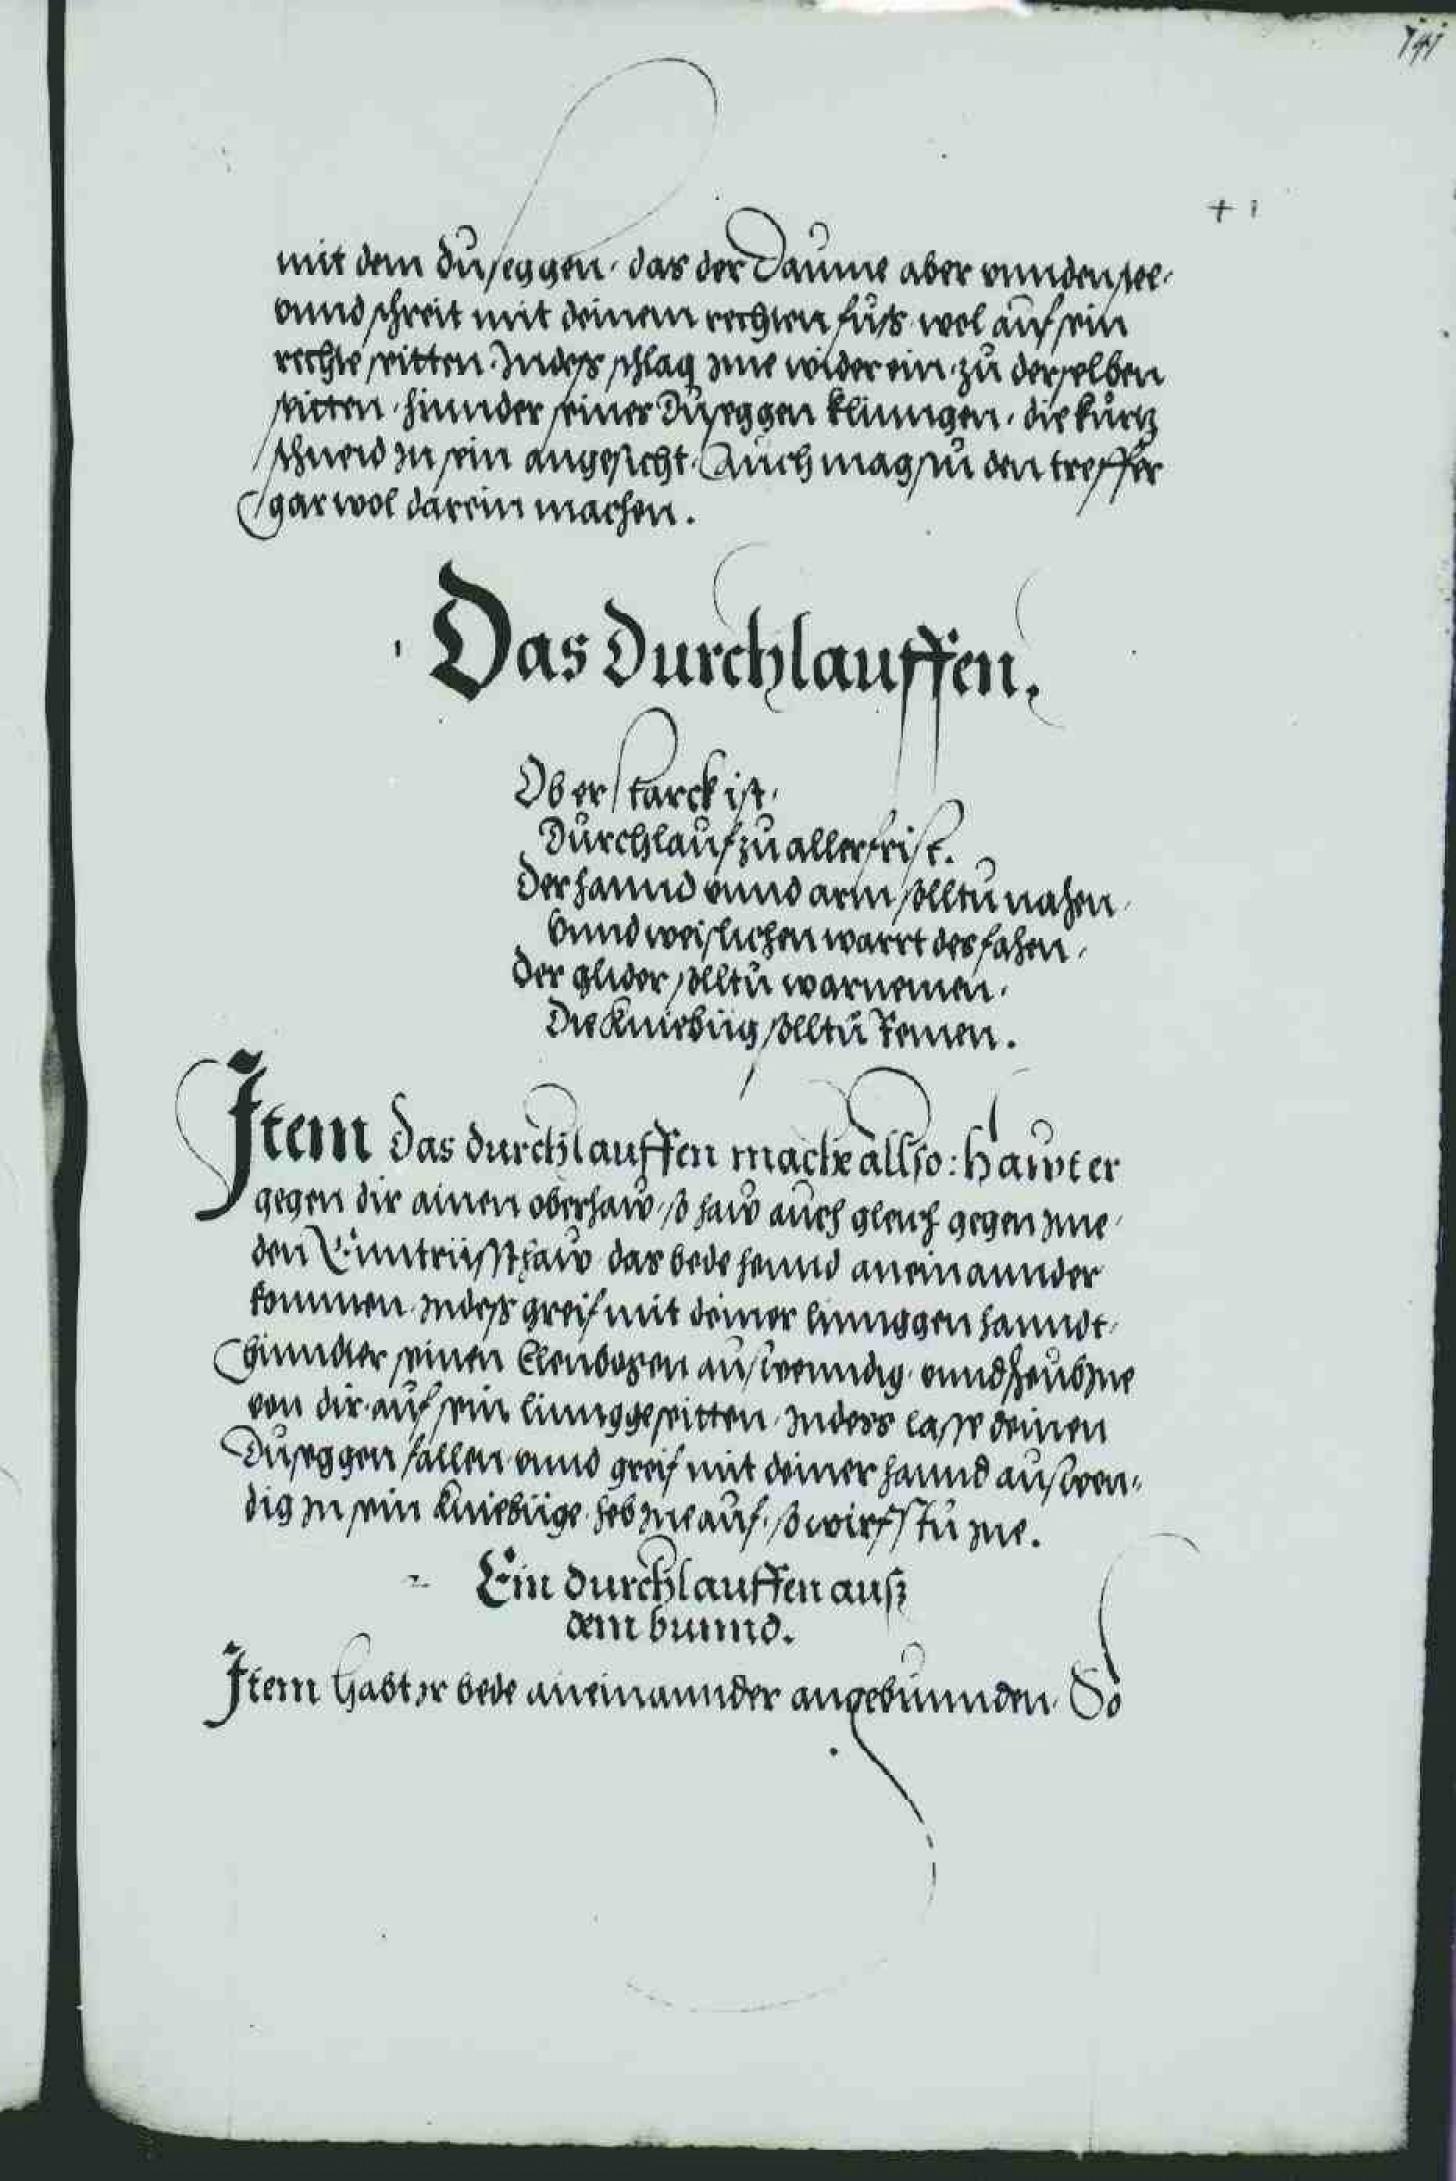 mit dem duseggen, das der Daume aber unnden stee,
unnd schreit mit deinem rechten fuss wol auf sein
rechte seitten. Indess schlag Ime wider ein, zu derselben
seitten, hinnder seiner Duseggen klinngen, die kurtz
schneid In sein angesicht. Auch magstu den treffer
gar wol darein machen.
Das Durchlauffen.
Ob er starck ist,
Durchlauf zu aller frist.
Der hannd unnd arm solltu nahen,
Unnd weislichen wartt des fahen,
Der glider solltu warnemen,
Die Kniebüg solltu Remen.
Item das durchlauffen mach allso: Hawt er
gegen dir ainen oberhaw, so haw auch gleich gegen Ime,
den Enntrüsthaw, das bede hennd aneinannder
kommen, Indess greif mit deiner linnggen hanndt,
hinnder seinen Elenbogen auswenndig, unnd heub Ine
von dir, auf sein linngge seitten, Indess lasse deinen
Duseggen fallen unnd greif mit deiner hannd auswen,
dig In sein kniebüge, heb Ine auf, so wirfstu Ine.
Ein durchlauffen auss
dem bunnd.
Item Habt Ir bede aneinannder angebunnden, So